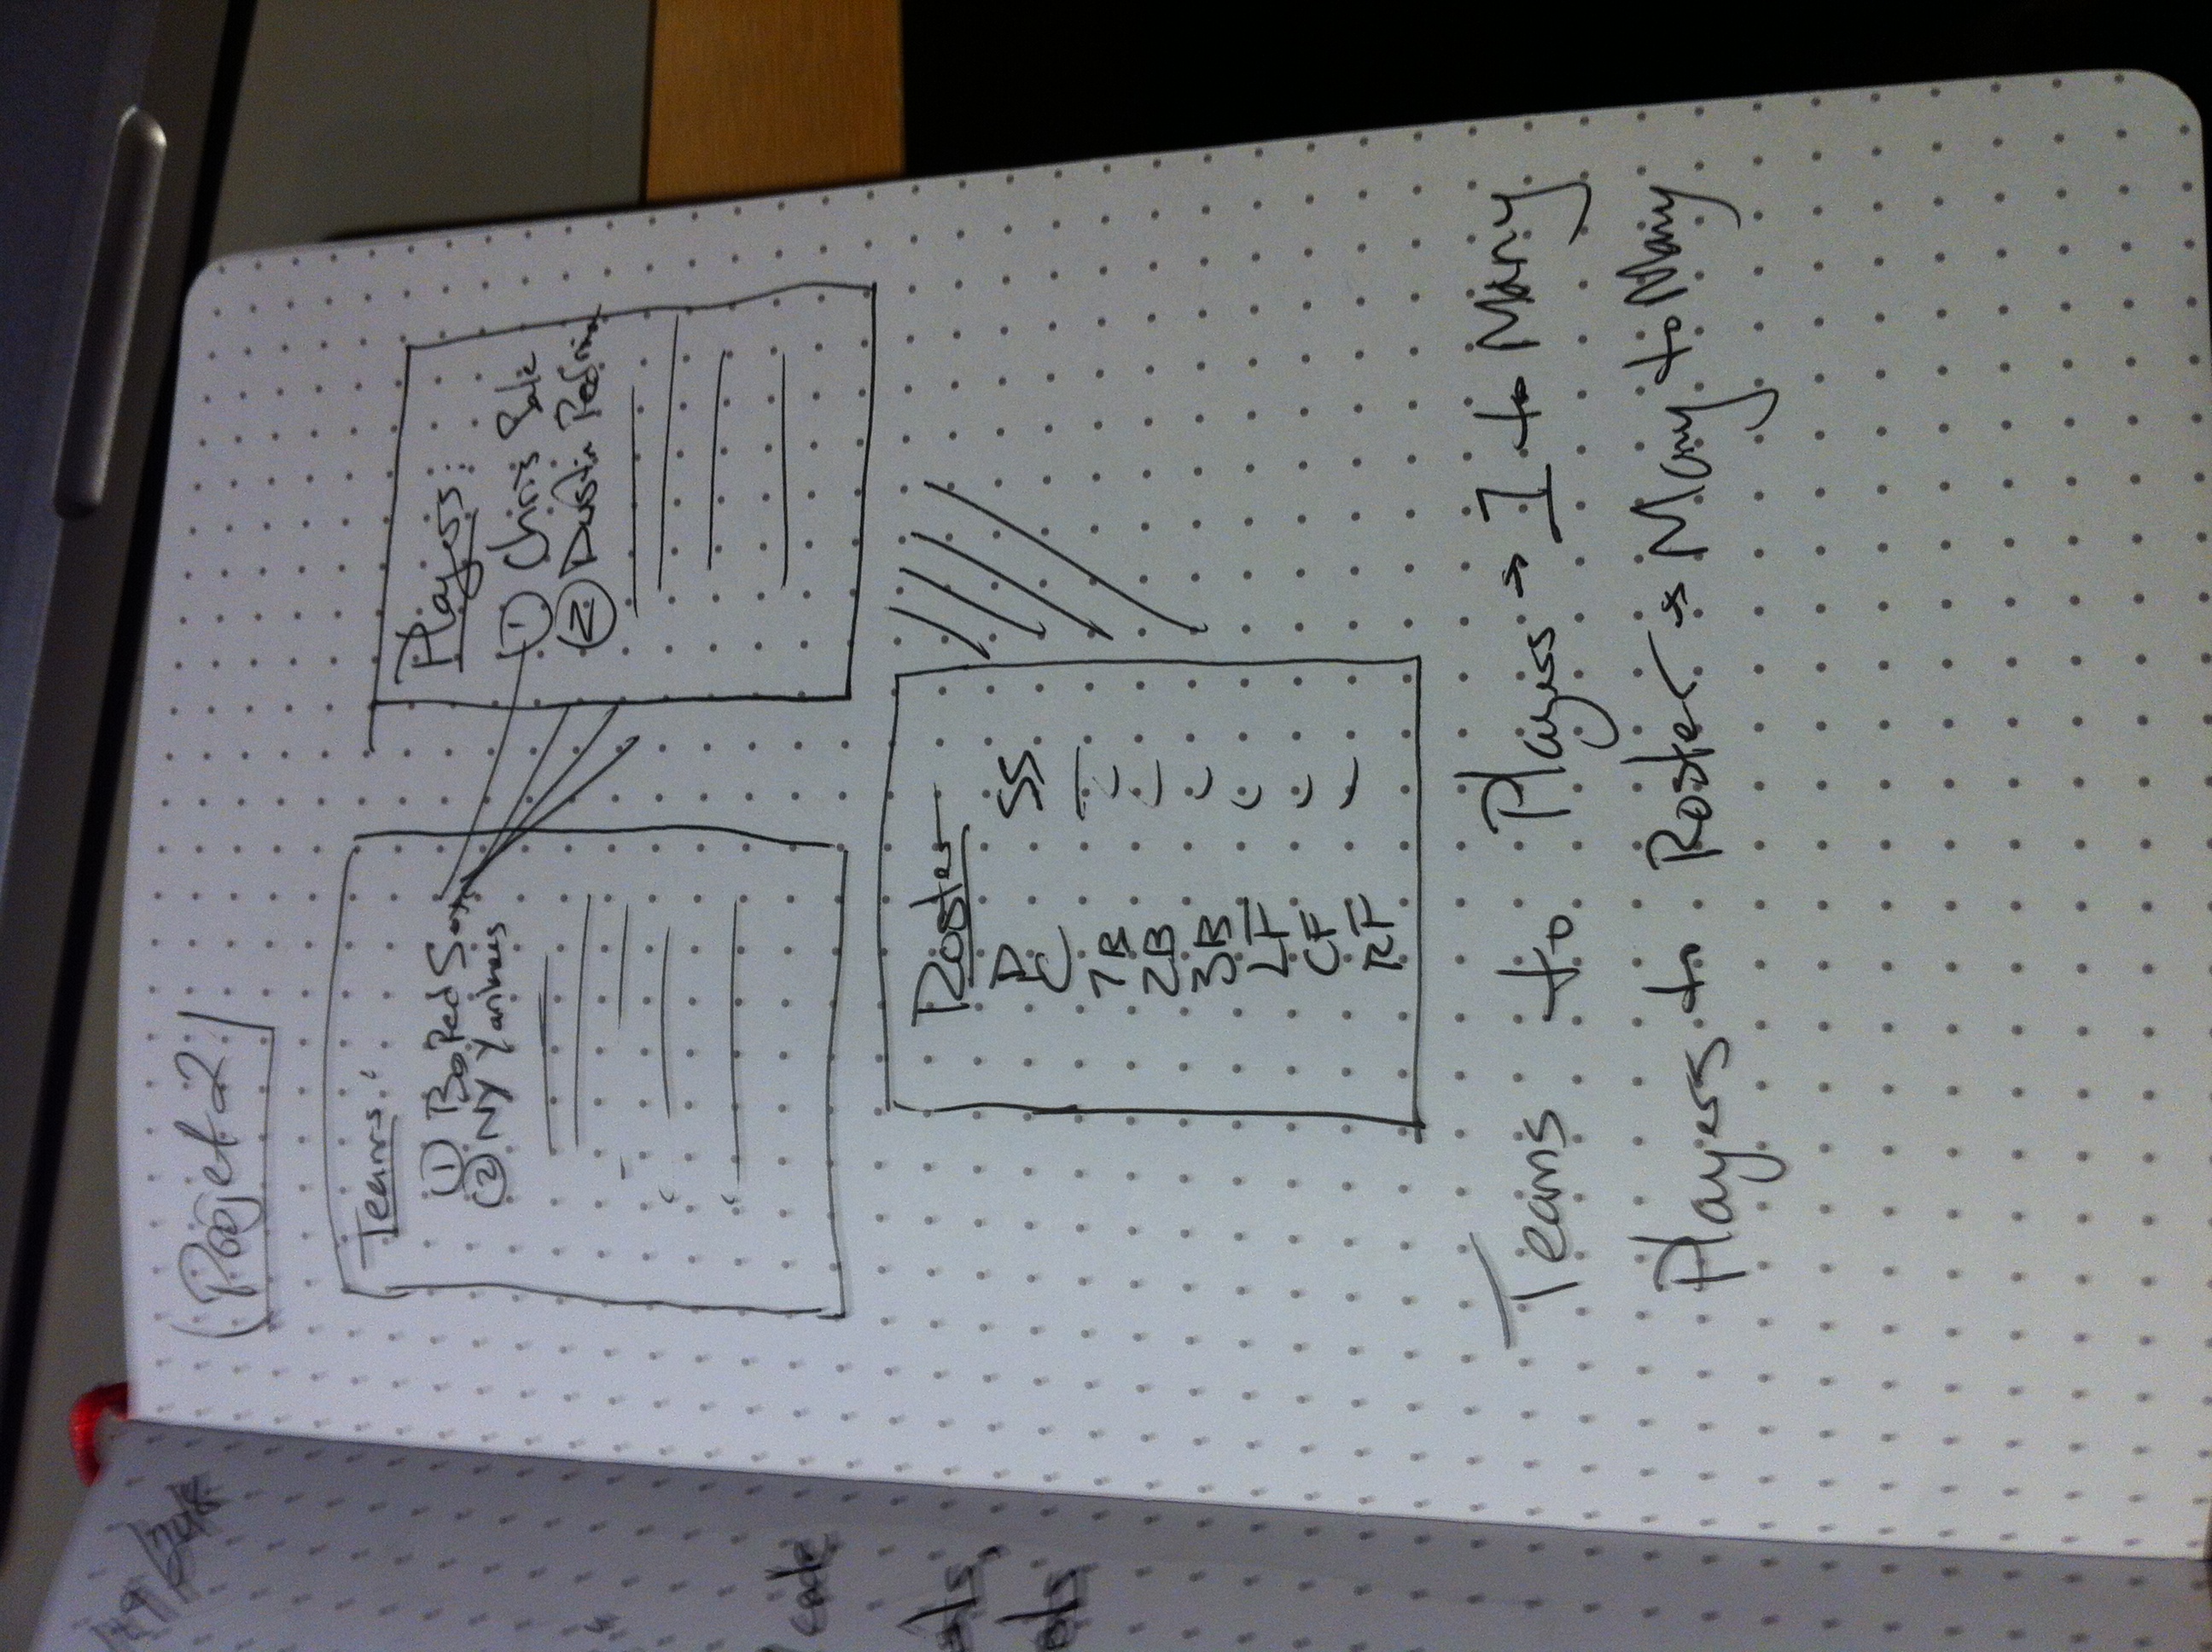 code
Projet 2
Teams:
① Bo Red Sox
② NY Yankees
Players:
① Chris Sale
② Dustin
Roster
P SS
C
1B
2B
3B
LF
CF
RF
Teams to Players → 1 to Many
Players to Roster → Many to Many